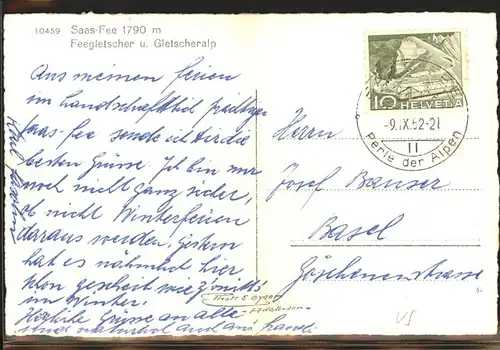 10459 Saas-Fee 1790 m
Feegletscher u. Gletscheralp
Aus meinen Ferien
im landschaftlich prächtigen
Saas-Fee sende ich Dir die
besten Grüsse. Ich bin nur
noch nicht ganz sicher,
ob nicht Winterferien
daraus werden. Gestern
hat es nähmlich hier
schon geschneit wie z'mitts
im Winter.
Herzliche Grüsse an alle
und nähmol
10
HELVETIA
-9.IX.52-21
II
Perle der Alpen
Herrn
Josef Banser
Basel
Göschenenstrasse